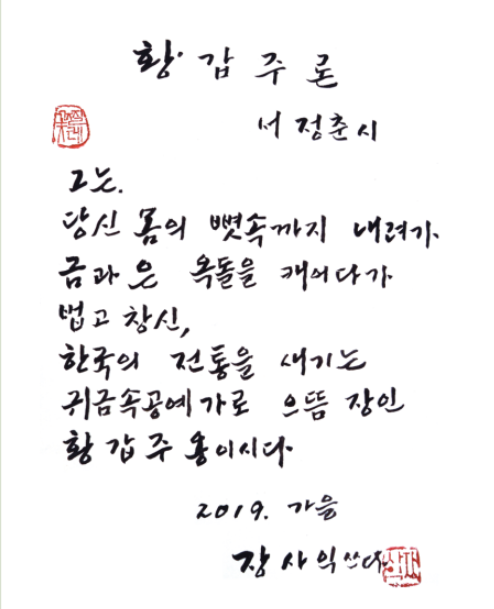 황갑주론
서정춘 시
그는.
당신 몸의 뼛속까지 내려가
금과 은 옥돌을 캐어다가
법고창신,
한국의 전통을 새기는
귀금속공예가로 으뜸 장인
황갑주 옹이시다.
2019. 가을
장사익 쓰다